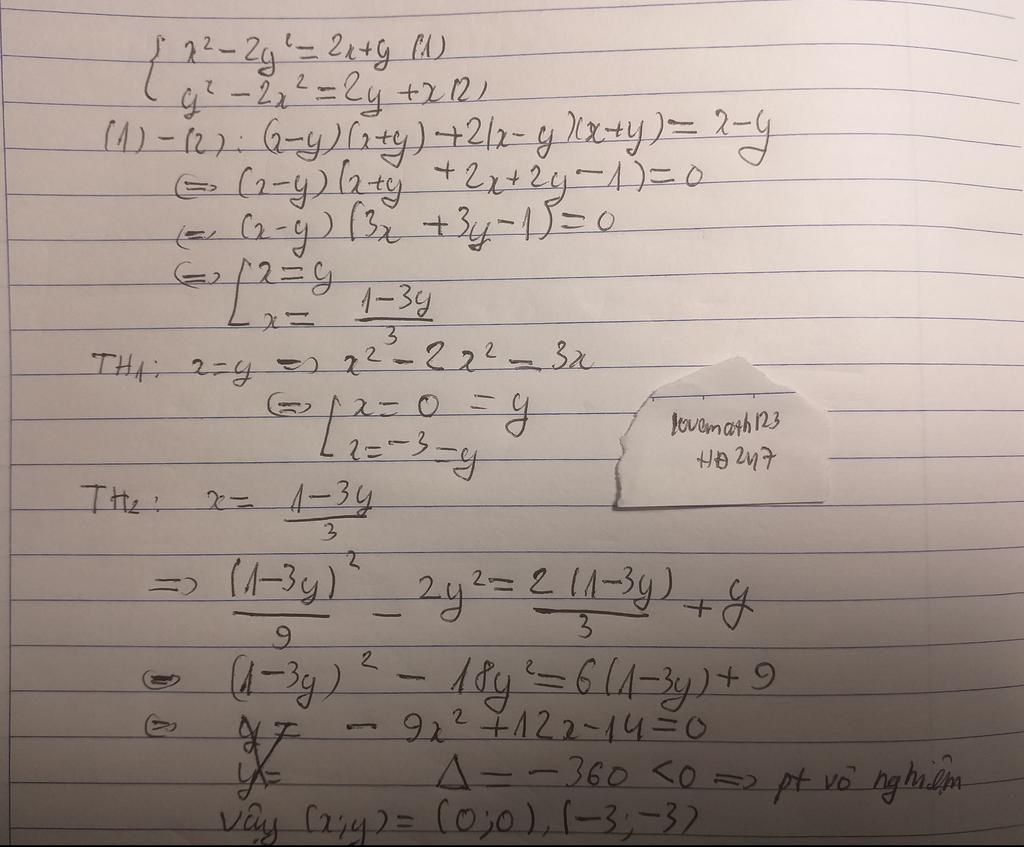 { x² - 2y² = 2x+y (1)
y² - 2x² = 2y + x (2)
(1) - (2) : (x-y)(x+y) + 2(x-y)(x+y) = x-y
⇔ (x-y)(x+y +2x+2y-1) = 0
⇔ (x-y)(3x +3y-1) = 0
⇔ [ x = y
x = (1-3y)/3
TH1: x=y => x² - 2x² = 3x
⇔ [ x = 0 = y
x = -3 = y
lovemath123
HĐ 247
TH2: x = (1-3y)/3
=> (1-3y)²/9 - 2y² = 2(1-3y)/3 + y
⇔ (1-3y)² - 18y² = 6(1-3y) + 9
⇔ - 9x² + 12x - 14 = 0
Δ = -360 < 0 => pt vô nghiệm
Vậy (x;y) = (0;0), (-3;-3)